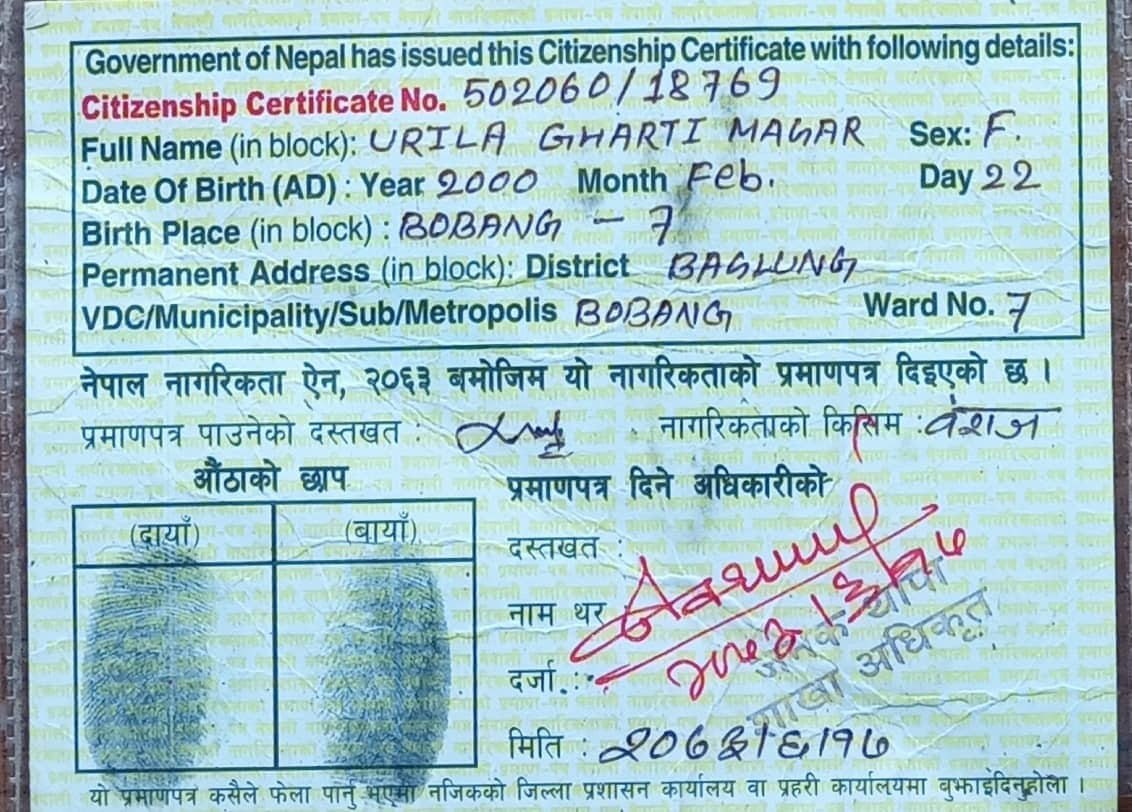 Government of Nepal has issued this Citizenship Certificate with following details:
Citizenship Certificate No. 502060/18769
Full Name (in block): URILA GHARTI MAGAR Sex: F.
Date Of Birth (AD) : Year 2000 Month Feb. Day 22
Birth Place (in block) : BOBANG - 7
Permanent Address (in block): District BAGLUNG
VDC/Municipality/Sub/Metropolis BOBANG Ward No. 7
नेपाल नागरिकता ऐन, २०६३ बमोजिम यो नागरिकताको प्रमाणपत्र दिइएको छ ।
प्रमाणपत्र पाउनेको दस्तखत : नागरिकताको किसिम : वंशज
औंठाको छाप
प्रमाणपत्र दिने अधिकारीको
(दायाँ) (बायाँ)
दस्तखत :
नाम थर
थापा
दर्जा. :
शाखा अधिकृत
मिति :
यो प्रमाणपत्र कसैले फेला पार्नु भएमा नजिकको जिल्ला प्रशासन कार्यालय वा प्रहरी कार्यालयमा बुझाईदिनुहोला ।